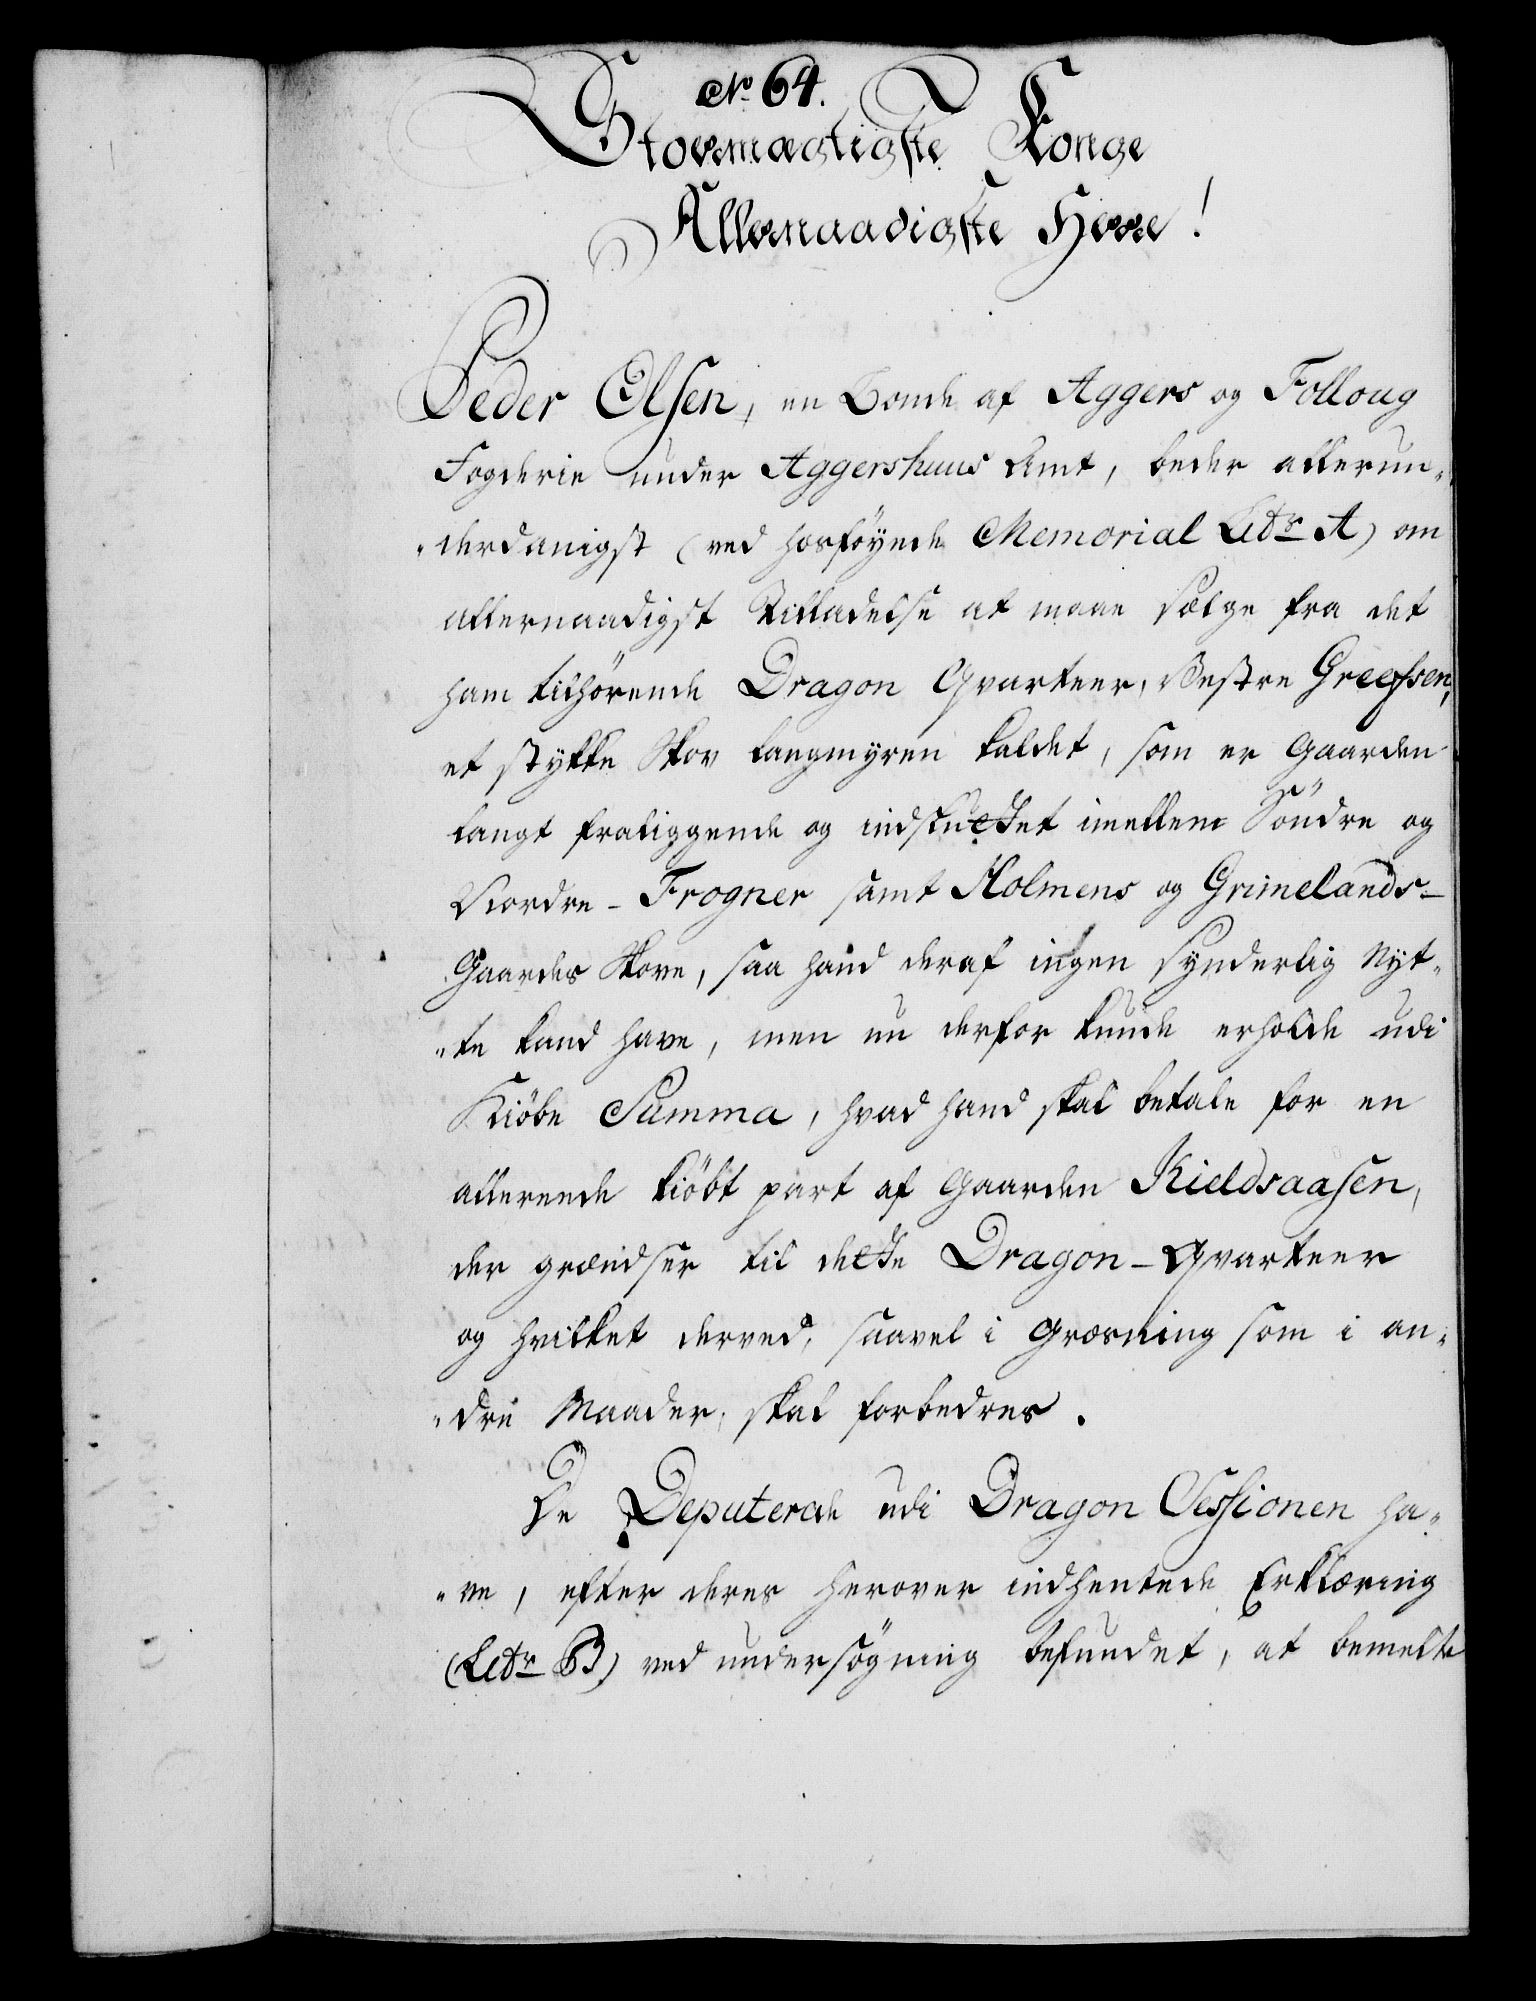 No 64.
Stormægtigste Konge
Allernaadigste Herre!
Peder Olsen, en Bonde af Aggers og Folloug
Fogderie under Aggershuus Amt, beder allerun„
„derdanigst (ved hosföyede Memorial Litr A) om
allernaadigst Tilladelse at maae sælge fra det
ham tilhörende Dragon Qvarteer, Vestre Greefsen,
et stykke Skov Langmyren kaldet, som er Gaarden
langt fraliggende og indslucket imellem Söndre og
Nordre - Frogner samt Holmens og Grimelands-
Gaardes Skove, saa hand deraf ingen synderlig Nyt„
„te kand have, men nu derfor kunde erholde udi
Kiöbe Summa, hvad hand skal betale for en
allerede kiöbt part af Gaarden Kieldsaasen,
der grændser til dette Dragon-Qvarteer
og hvilket derved, saavel i Græsning som i an„
„dre Maader, skal forbedres.
De Deputerede udi Dragon Sessionen ha„
„ve, efter deres herover indhentede Erklæring
(Litr B) ved undersögning befundet, at bemelte